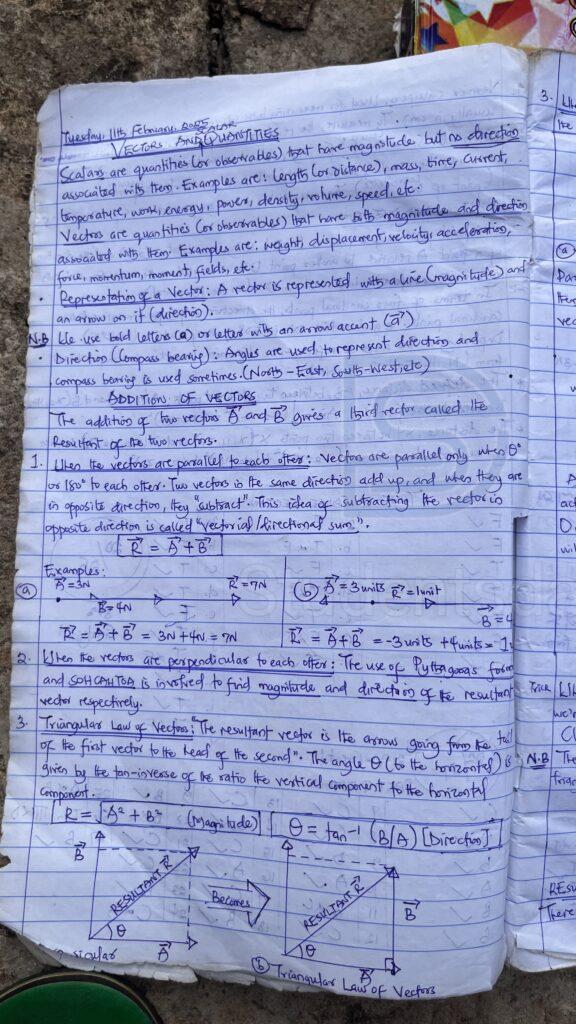 Tuesday, 11th February, 2025
VECTORS AND SCALAR QUANTITIES
Scalars are quantities (or observables) that have magnitude but no direction
associated with them. Examples are: length (or distance), mass, time, current,
temperature, work, energy, power, density, volume, speed, etc.
Vectors are quantities (or observables) that have both magnitude and direction
associated with them. Examples are: weight, displacement, velocity, acceleration,
force, momentum, moment, fields, etc.
• Representation of a Vector: A vector is represented with a line (magnitude) and
an arrow on it (direction).
N.B We use bold letters (a) or letter with an arrow accent (a⃗)
• Direction (Compass bearing): Angles are used to represent direction and
compass bearing is used sometimes. (North-East, South-West, etc)
ADDITION OF VECTORS
The addition of two vectors A⃗ and B⃗ gives a third vector called the
Resultant of the two vectors.
1. When the vectors are parallel to each other: Vectors are parallel only when 0°
or 180° to each other. Two vectors in the same direction add up, and when they are
in opposite direction, they "subtract". This idea of subtracting the vector in
opposite direction is called "vectorial/directional sum".
R⃗ = A⃗ + B⃗
Examples:
(a) A⃗ = 3N R⃗ = 7N
B⃗ = 4N
R⃗ = A⃗ + B⃗ = 3N + 4N = 7N
(b) A⃗ = 3 units R⃗ = 1 unit
B⃗ = 4
R⃗ = A⃗ + B⃗ = -3 units + 4 units = 1
2. When the vectors are perpendicular to each other: The use of Pythagoras form
and SOHCAHTOA is involved to find magnitude and direction of the resultant
vector respectively.
3. Triangular Law of Vectors: "The resultant vector is the arrow going from the tail
of the first vector to the head of the second". The angle θ (to the horizontal) is
given by the tan-inverse of the ratio the vertical component to the horizontal
component.
R = √A² + B² (Magnitude) θ = tan⁻¹ (B/A) [Direction]
B⃗
RESULTANT R⃗
θ
A⃗
Becomes
RESULTANT R⃗
B⃗
θ
A⃗
(b) Triangular Law of Vectors
3.
(a)
Trick
N.B The
There